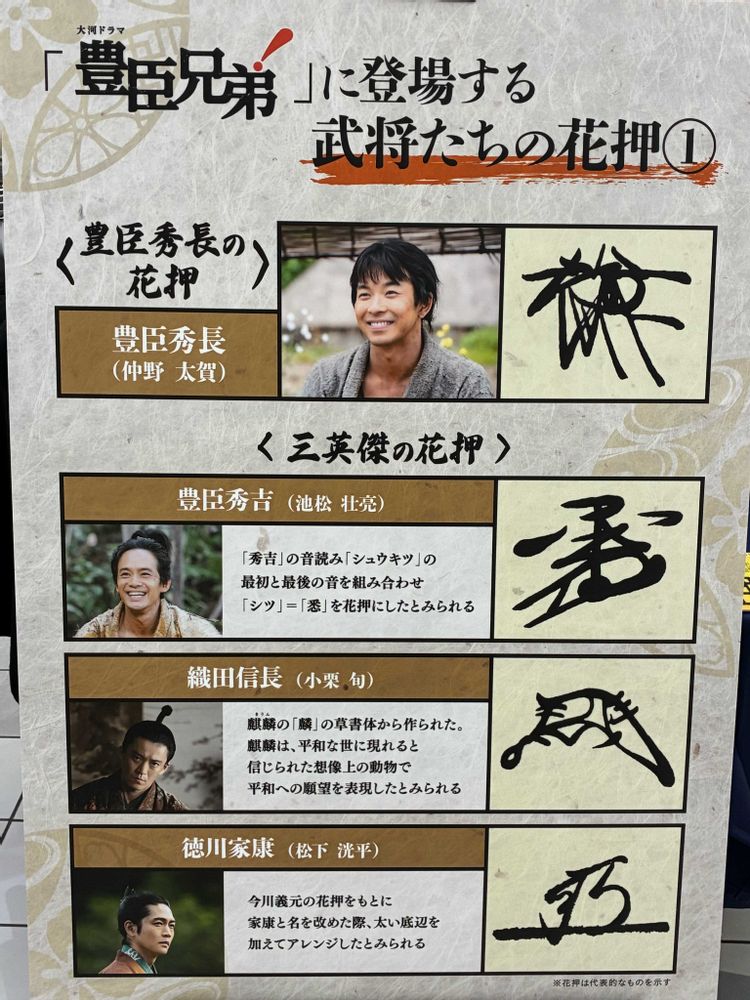 大河ドラマ
「豊臣兄弟!」に登場する
武将たちの花押①
〈豊臣秀長の
花押〉
豊臣秀長
(仲野 太賀)
〈三英傑の花押〉
豊臣秀吉(池松 壮亮)
「秀吉」の音読み「シュウキツ」の
最初と最後の音を組み合わせ
「シツ」=「悉」を花押にしたとみられる
織田信長(小栗 旬)
きりん
麒麟の「麟」の草書体から作られた。
麒麟は、平和な世に現れると
信じられた想像上の動物で
平和への願望を表現したとみられる
徳川家康(松下 洸平)
今川義元の花押をもとに
家康と名を改めた際、太い底辺を
加えてアレンジしたとみられる
※花押は代表的なものを示す